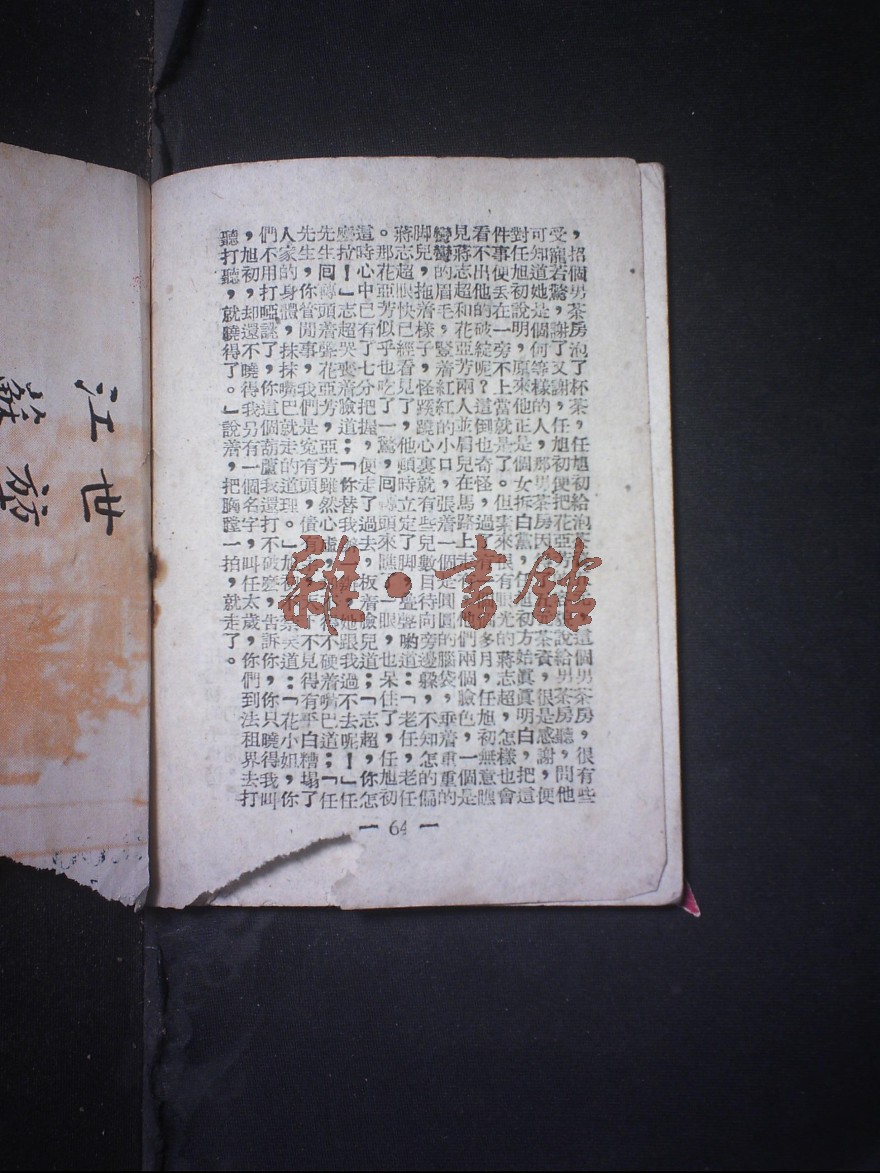 ，招個男茶房泡了杯茶，任旭初給泡這個男茶房，很有些
受寵若驚，謝了又謝，任旭初便把花亞說給男茶房聽，問他
可知道她是個何等樣的人，那男茶房因茶資，很是感謝，便
對任旭初說明，原來他正是個女拆白黨，任旭初方始眞眞明白，把這
件事便丟在一旁不上當就是了。但事來很有光的蔣志超，怎樣也會
看不出他的破綻呢？這倒也奇怪，過多月，任旭初無意瞧
見蔣志超和花亞芳兩人並肩兒在馬路上走他們兩個臉色，一個是
彎彎的眉毛，豎着紅紅的小口，張着一個圓圓的腦袋，垂着重重的
脚兒，拖着樣子，怪蹊蹺心裏就有些兒數目待向旁邊躱，不知怎的偏
蔣志超恨快已經看見了，他頓時立定了脚聲喲道：「老任，老任
。那花亞芳似乎也吃了一驚，囘轉頭來瞧一眼，也呆住了，任旭初
這時心中已有了七分把握，便走了過去，扳着臉兒道：「志超，你怎
麼拉！」志超哭喪着臉道：「你替我她跟我過不去呢！」任
先生囘轉頭着聲花亞芳，亞芳雖然心虛，不硬着嘴巴道：「任
先生，你管閒事，我們是寃有頭，債有不見得有平白糟塌了
人家的身體，抹抹嘴巴就走的道理。」旭笑道：「花小姐，你
們不用打啞謎了，你這個葫蘆我還打不破麽，告訴你，你只曉得我叫
，旭初，却還不曉得我另有一個名字，叫任太歲，你們到法租界去打
聽打聽，就曉得了。」說着，把胸膛一拍，就走了。
— 64 —
雜·書館
江
世